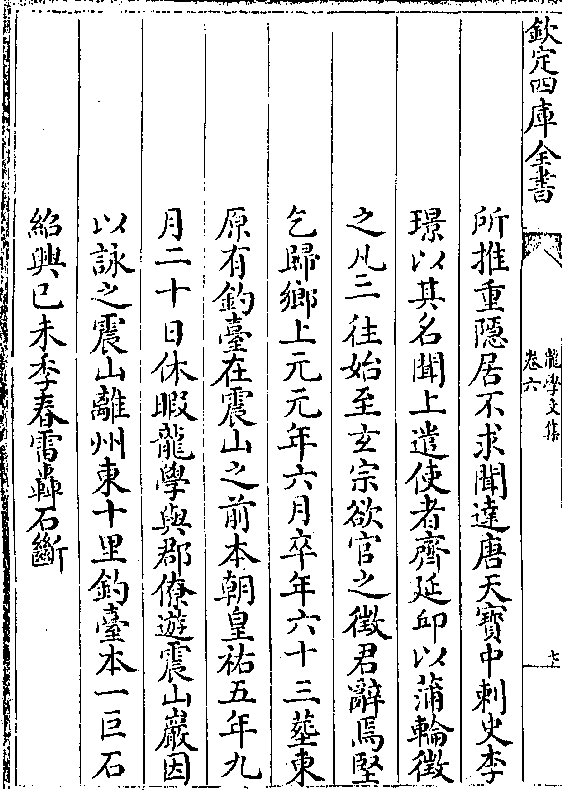 欽定四庫全書
龍學文集
卷六
七
所推重隱居不求聞達唐天寳中刺史李
璟以其名聞上遣使者齊延邱以蒲輪徵
之凡三往始至玄宗欲官之徵君辭焉堅
乞歸鄉上元元年六月卒年六十三塟東
原有釣臺在震山之前本朝皇祐五年九
月二十日休暇龍學與郡僚遊震山巖因
以詠之震山離州東十里釣臺本一巨石
紹興己未季春雷轟石斷